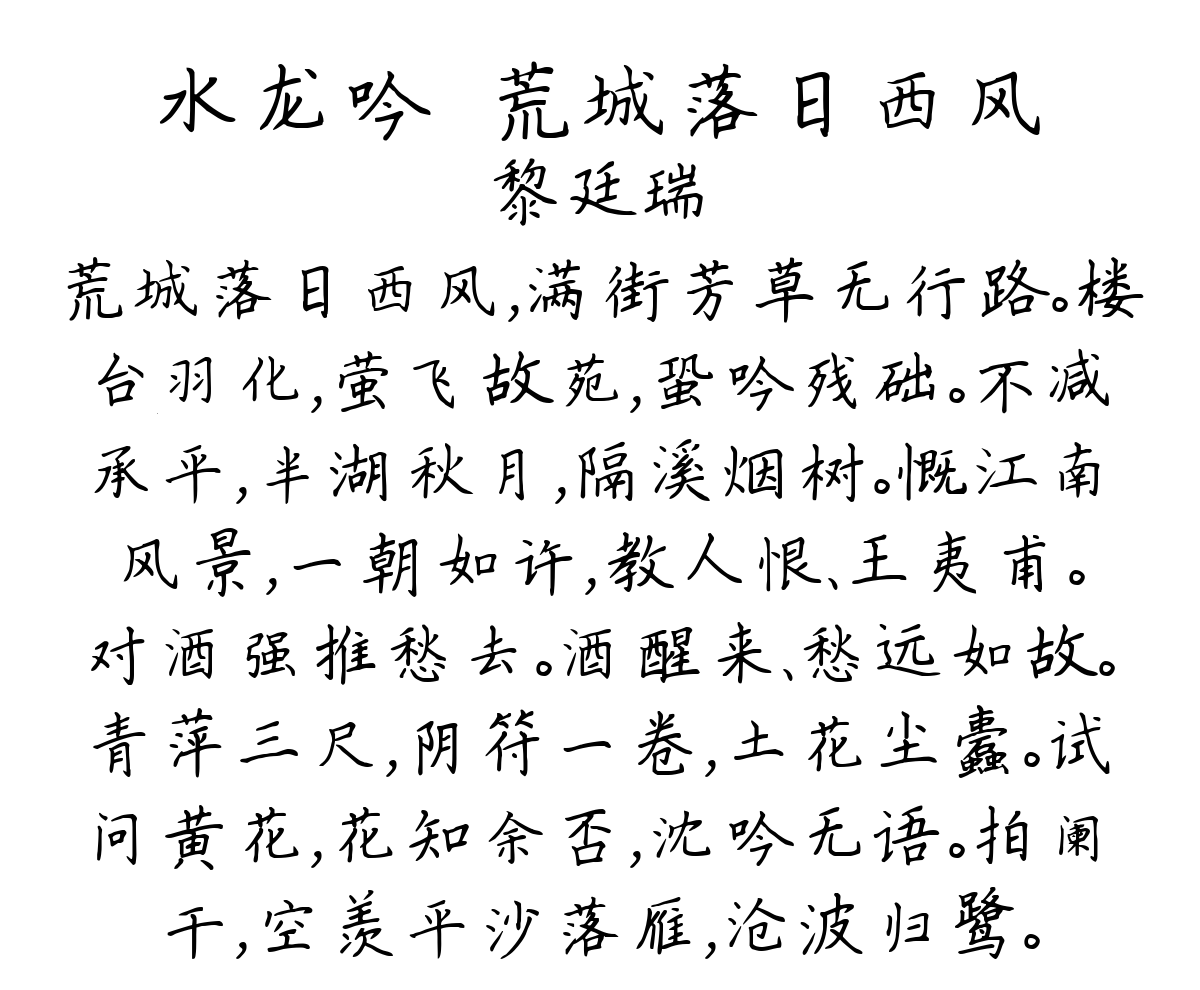 水龙吟 荒城落日西风
黎廷瑞
荒城落日西风,满街芳草无行路。楼
台羽化,萤飞故苑,蛩吟残础。不减
承平,半湖秋月,隔溪烟树。慨江南
风景,一朝如许,教人恨、王夷甫。
对酒强推愁去。酒醒来、愁远如故。
青萍三尺,阴符一卷,土花尘蠹。试
问黄花,花知余否,沈吟无语。拍阑
干,空羡平沙落雁,沧波归鹭。